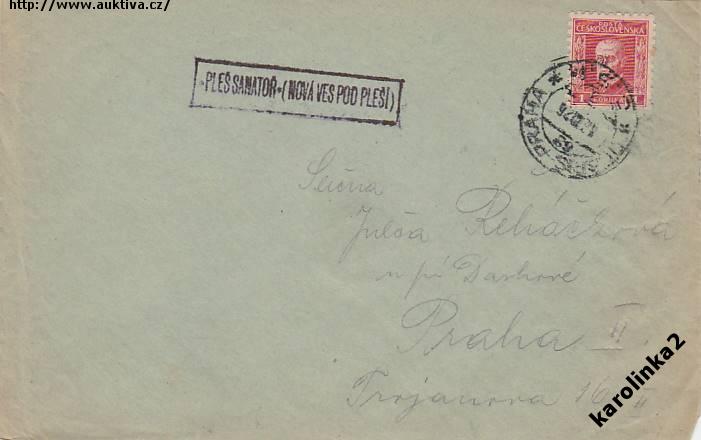 http://www.auktiva.cz/
POŠTA
ČESKOSLOVENSKÁ
1 KORUNA
PRAHA
PLEŠ SANATOŘ-(NOVÁ VES POD PLEŠÍ)
Slečna
Julča Řeháčková
u pí Daškové
Praha II.
Trojanova 16 II
karolinka2